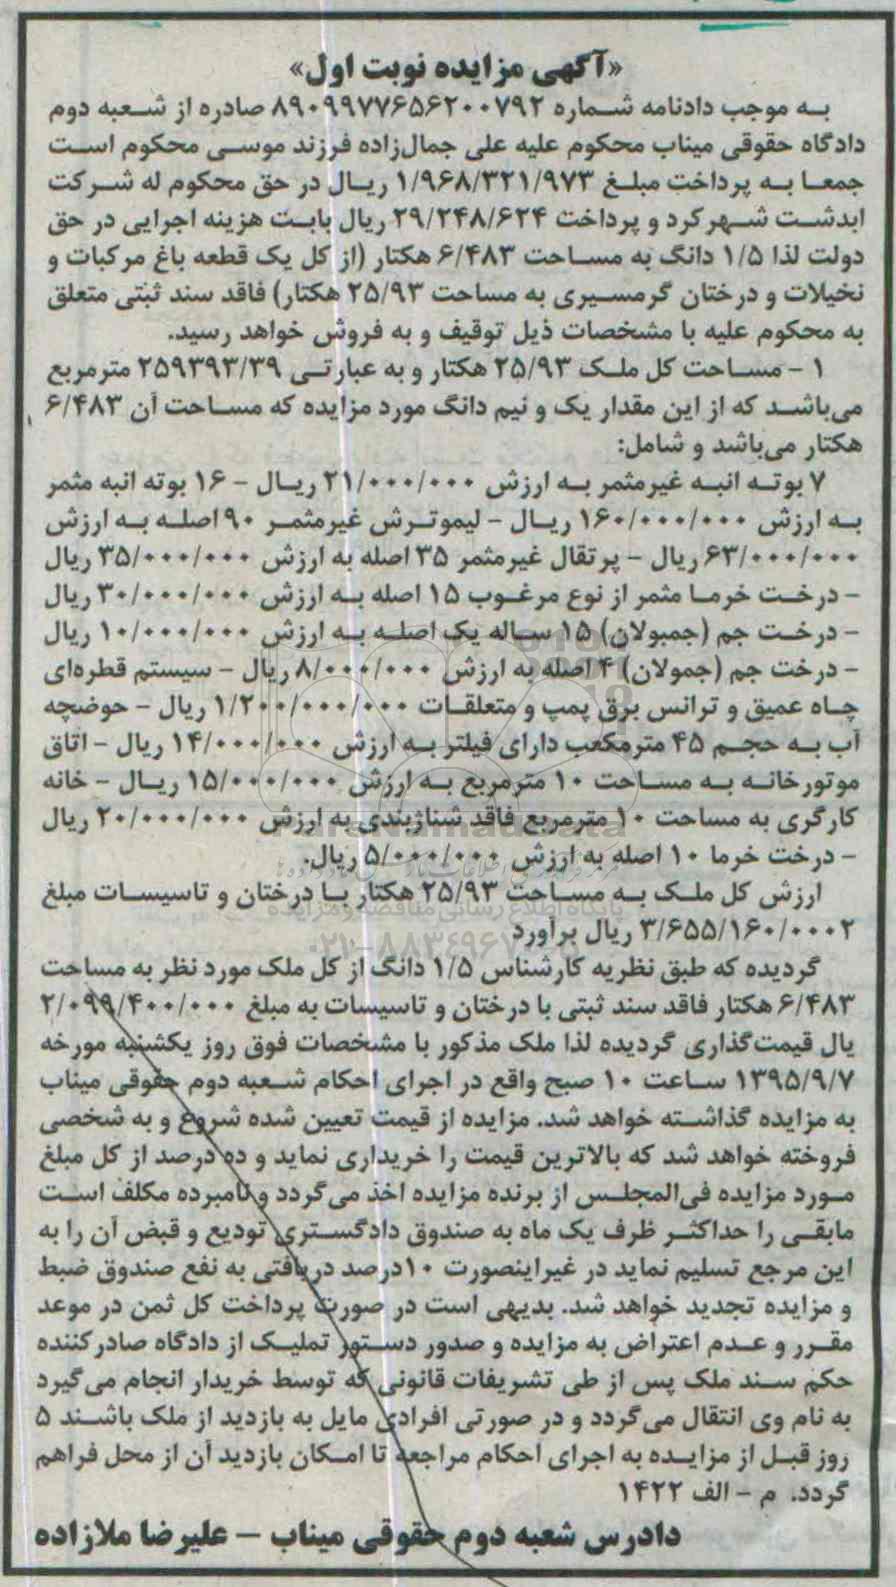 «آگهی مزایده نوبت اول»
به موجب دادنامه شماره ۸۹۰۹۹۷۷۶۵۶۲۰۰۷۹۲ صادره از شعبه دوم
دادگاه حقوقی میناب محکوم علیه علی جمال‌زاده فرزند موسی محکوم است
جمعا به پرداخت مبلغ ۱/۹۶۸/۳۲۱/۹۷۳ ریال در حق محکوم له شرکت
ابدشت شهرکرد و پرداخت ۲۹/۲۴۸/۶۲۴ ریال بابت هزینه اجرایی در حق
دولت لذا ۱/۵ دانگ به مساحت ۶/۴۸۳ هکتار (از کل یک قطعه باغ مرکبات و
نخیلات و درختان گرمسیری به مساحت ۲۵/۹۳ هکتار) فاقد سند ثبتی متعلق
به محکوم علیه با مشخصات ذیل توقیف و به فروش خواهد رسید.
۱ – مساحت کل ملک ۲۵/۹۳ هکتار و به عبارتی ۲۵۹۳۹۳/۳۹ مترمربع
می‌باشد که از این مقدار یک و نیم دانگ مورد مزایده که مساحت آن ۶/۴۸۳
هکتار می‌باشد و شامل:
۷ بوته انبه غیرمثمر به ارزش ۲۱/۰۰۰/۰۰۰ ریال – ۱۶ بوته انبه مثمر
به ارزش ۱۶۰/۰۰۰/۰۰۰ ریال – لیموترش غیرمثمر ۹۰ اصله به ارزش
۶۳/۰۰۰/۰۰۰ ریال – پرتقال غیرمثمر ۳۵ اصله به ارزش ۳۵/۰۰۰/۰۰۰ ریال
– درخت خرما مثمر از نوع مرغوب ۱۵ اصله به ارزش ۳۰/۰۰۰/۰۰۰ ریال
– درخت جم (جمبولان) ۱۵ ساله یک اصله به ارزش ۱۰/۰۰۰/۰۰۰ ریال
– درخت جم (جمولان) ۴ اصله به ارزش ۸/۰۰۰/۰۰۰ ریال – سیستم قطره‌ای
چاه عمیق و ترانس برق پمپ و متعلقات ۱/۲۰۰/۰۰۰/۰۰۰ ریال – حوضچه
آب به حجم ۴۵ مترمکعب دارای فیلتر به ارزش ۱۴/۰۰۰/۰۰۰ ریال – اتاق
موتورخانه به مساحت ۱۰ مترمربع به ارزش ۱۵/۰۰۰/۰۰۰ ریال – خانه
کارگری به مساحت ۱۰ مترمربع فاقد شناژبندی به ارزش ۲۰/۰۰۰/۰۰۰ ریال
– درخت خرما ۱۰ اصله به ارزش ۵/۰۰۰/۰۰۰ ریال.
ارزش کل ملک به مساحت ۲۵/۹۳ هکتار با درختان و تاسیسات مبلغ
۳/۶۵۵/۱۶۰/۰۰۰۲ ریال برآورد
گردیده که طبق نظریه کارشناس ۱/۵ دانگ از کل ملک مورد نظر به مساحت
۶/۴۸۳ هکتار فاقد سند ثبتی با درختان و تاسیسات به مبلغ ۲/۰۹۹/۴۰۰/۰۰۰
یال قیمت‌گذاری گردیده لذا ملک مذکور با مشخصات فوق روز یکشنبه مورخه
۱۳۹۵/۹/۷ ساعت ۱۰ صبح واقع در اجرای احکام شعبه دوم حقوقی میناب
به مزایده گذاشته خواهد شد. مزایده از قیمت تعیین شده شروع و به شخصی
فروخته خواهد شد که بالاترین قیمت را خریداری نماید و ده درصد از کل مبلغ
مورد مزایده فی‌المجلس از برنده مزایده اخذ می‌گردد و نامبرده مکلف است
مابقی را حداکثر ظرف یک ماه به صندوق دادگستری تودیع و قبض آن را به
این مرجع تسلیم نماید در غیراینصورت ۱۰درصد دریافتی به نفع صندوق ضبط
و مزایده تجدید خواهد شد. بدیهی است در صورت پرداخت کل ثمن در موعد
مقرر و عدم اعتراض به مزایده و صدور دستور تملیک از دادگاه صادرکننده
حکم سند ملک پس از طی تشریفات قانونی که توسط خریدار انجام می‌گیرد
به نام وی انتقال می‌گردد و در صورتی افرادی مایل به بازدید از ملک باشند ۵
روز قبل از مزایده به اجرای احکام مراجعه تا امکان بازدید آن از محل فراهم
گردد. م – الف ۱۴۲۲
دادرس شعبه دوم حقوقی میناب – علیرضا ملازاده